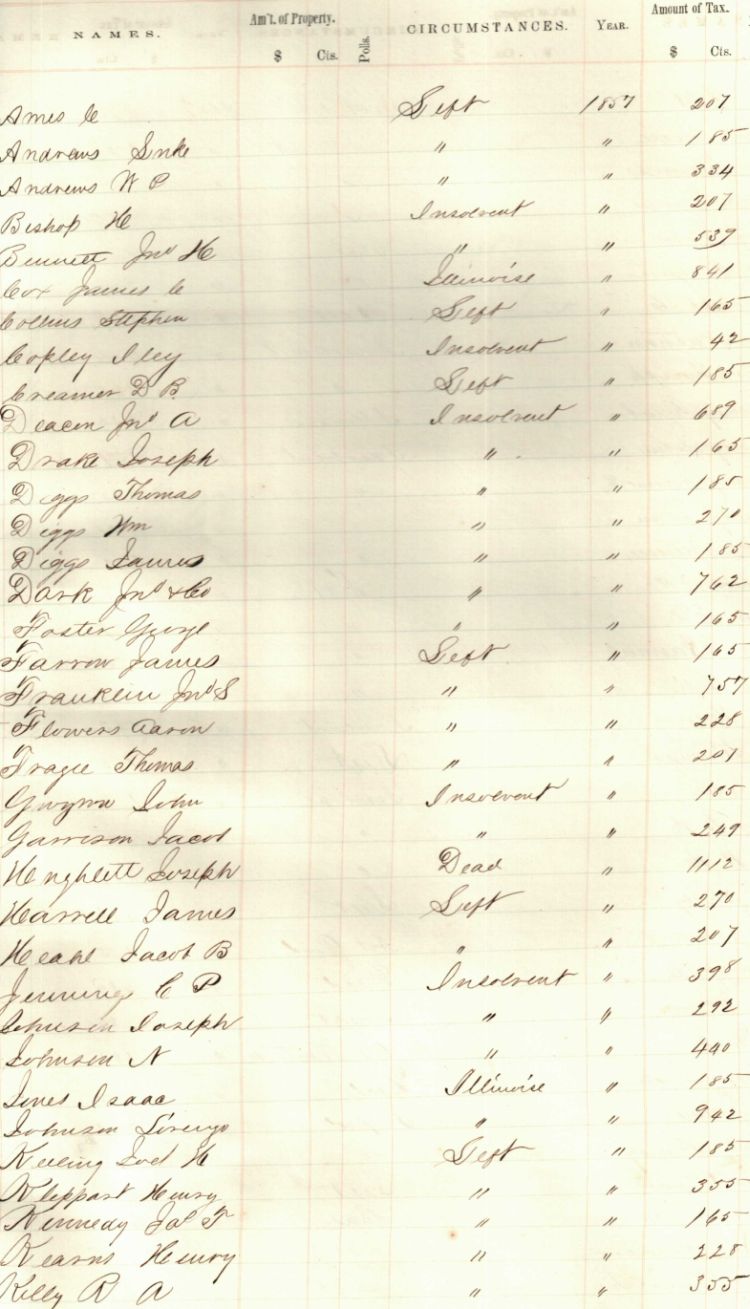 NAMES. Am't. of Property. Polls. CIRCUMSTANCES. YEAR. Amount of Tax.
$ Cts. $ Cts.
Ames C Left 1857 207
Andrews Luke " " 185
Andrews W P " " 334
Bishop H Insolvent " 207
Bennett Jno H " " 539
Cox James C Illinoise " 841
Collins Stephen Left " 165
Copley Iley Insolvent " 42
Creamer D B. Left " 185
Deacon Jno A Insolvent " 689
Drake Joseph " " 165
Diggs Thomas " " 185
Diggs Wm " " 270
Diggs James " " 185
Dark Jno & Co " " 762
Foster George " " 165
Farrow James Left " 165
Franklin Jno S " " 757
Flowers Aaron " " 228
Thomas " " 207
Gwynn John Insolvent " 185
Garrison Jacob " " 249
Henghlett Joseph Dead " 1112
Harrell James Left " 270
Jacob B " " 207
Jennings C P Insolvent " 398
Johnson Joseph " " 292
Johnson N " " 440
Jones Isaac Illinoise " 185
Johnson Lorenzo " " 942
Keeling Joel H Left " 185
Kleppart Henry " " 355
Kennedy Jas T " " 165
Kearns Henry " " 228
Killy R A " " 355